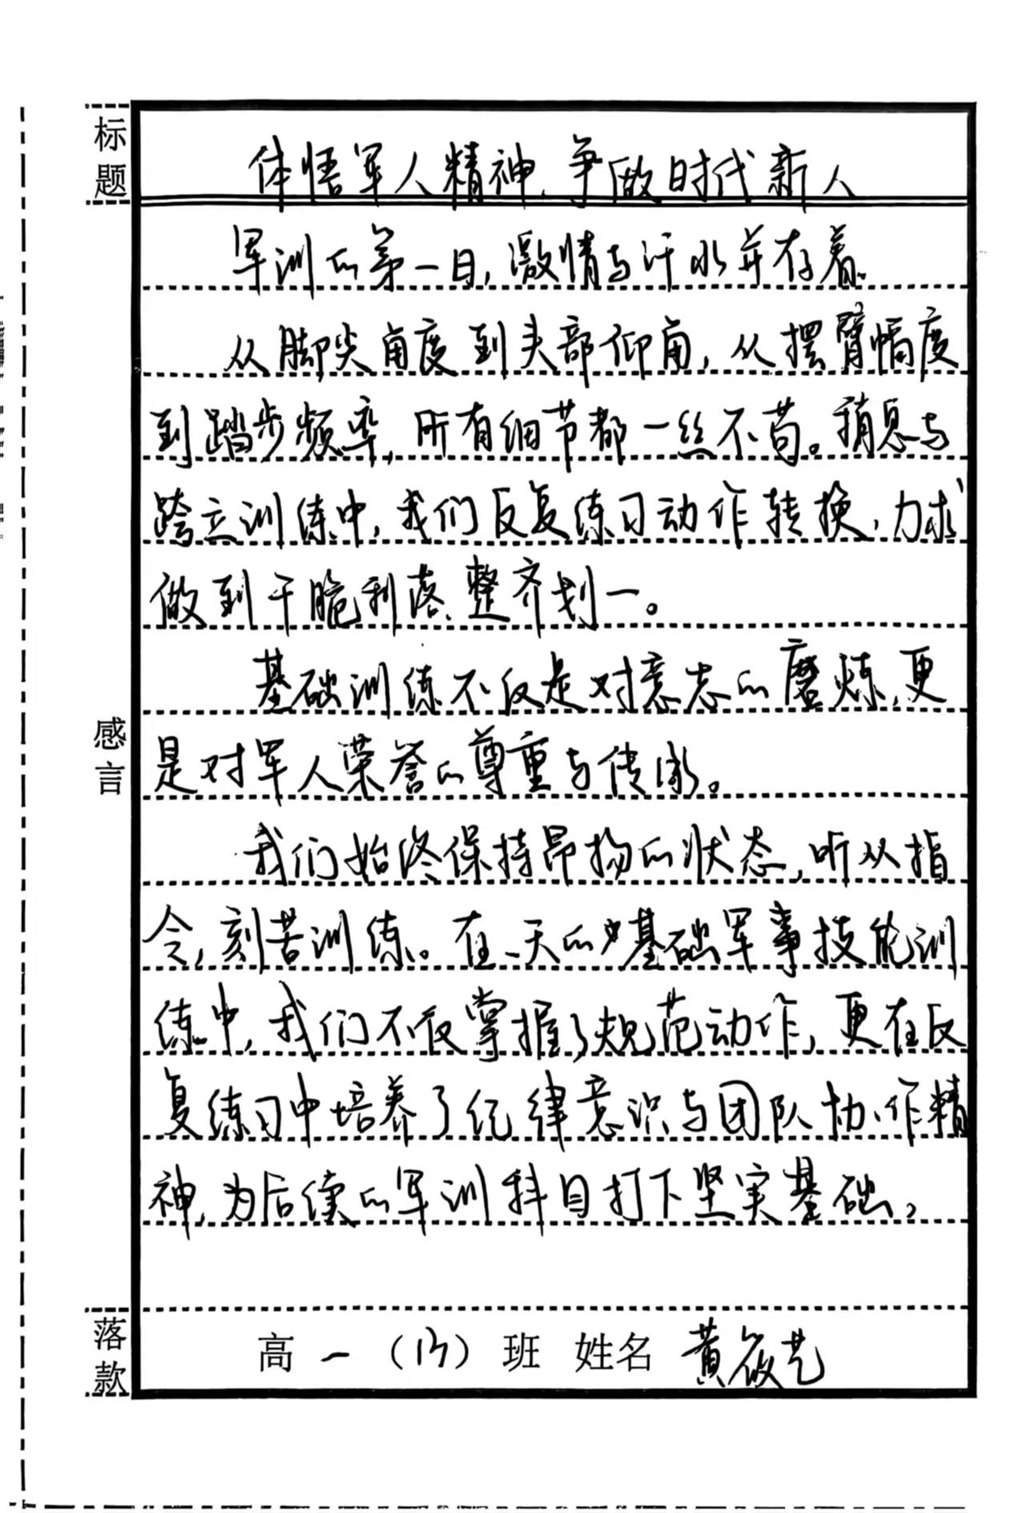 标题
体悟军人精神、争做时代新人
军训的第一日,激情与汗水并存着。
从脚尖角度到头部仰角,从摆臂幅度
到踏步频率,所有细节都一丝不苟。稍息与
跨立训练中,我们反复练习动作转换,力求
做到干脆利落、整齐划一。
基础训练不仅是对意志的磨炼,更
是对军人荣誉的尊重与传承。
感言
我们始终保持昂扬的状态,听从指
令,刻苦训练。在一天的基础军事技能训
练中,我们不仅掌握了规范动作,更在反
复练习中培养了纪律意识与团队协作精
神,为后续的军训科目打下坚实基础。
落款
高一(13)班 姓名 黄筱艺